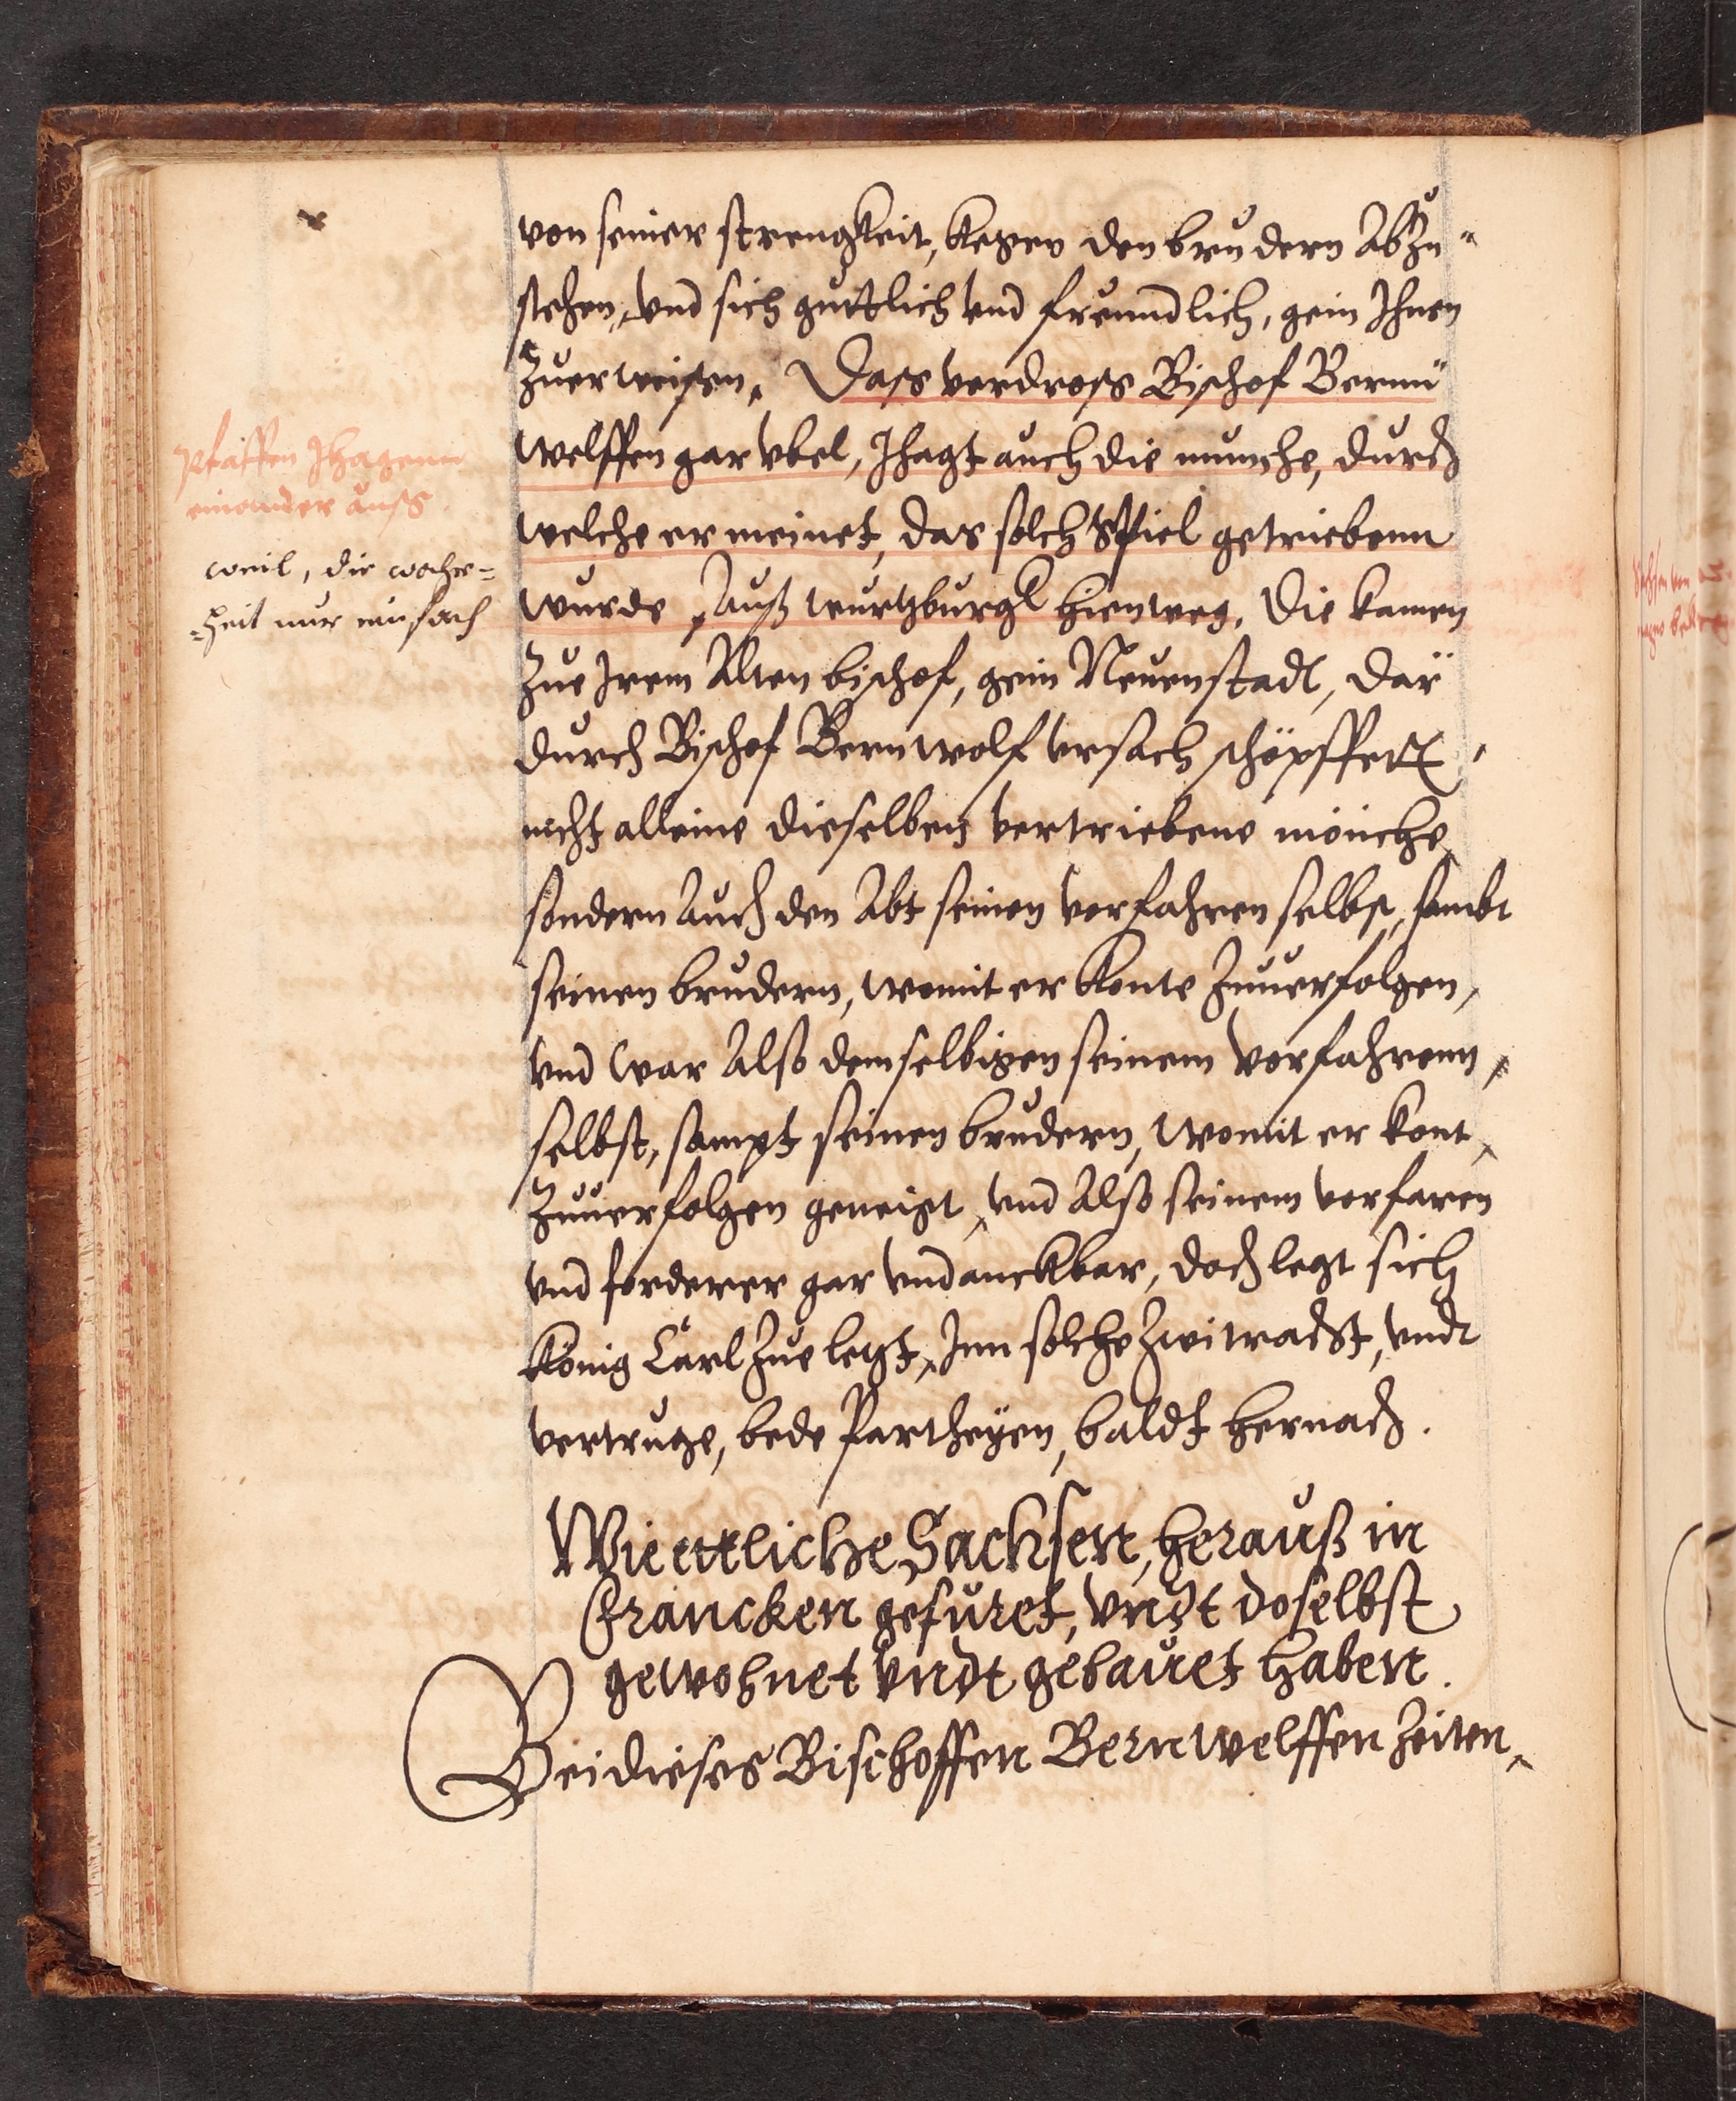 von seiner strengkeit, kegen den brudern Abzu-
stehen, vnd sich guttlich vnd freundlich, gein Ihnen
Zuerweisen. Dass verdross Bischof Bernn
Welffen gar vbel, Jhagt auch die munche, durch
welche er meinet, das solch Spiel getriebenn
wurde, Auß wurtzburgk hienweg. Die kamen
Zue Irem Alten bischof, gein Neuenstadt, dar
durch Bischof Bernwolf vrsach schöpffett,
nicht alleine dieselben vertriebene mönche
sondern Auch den Abt seinen vorfahren selbst, sambt
seinen brudern, womit er konte Zuuerfolgen,
vnd war Also demselbigen seinem Vorfahrenn,
selbst, sampt seinen brudern, womit er kont
Zuuerfolgen geneigt, vnd Also seinem vorfaren
vnd forderer gar vndanckbar, doch legt sich
König Carl Zue letzt, Inn solche Zwitracht, vndt
vertruge, bede Partheyen, baldt hernach.
Wie ettliche Sachsen, herauß in
Francken gefüret, vndt doselbst
gewohnet vndt gebauet haben.
Bei dieses Bischoffen Bernwelffen Zeiten
Pfaffen Jhagenn
einander auss.
weil, die wahr=
=heit nur einfach